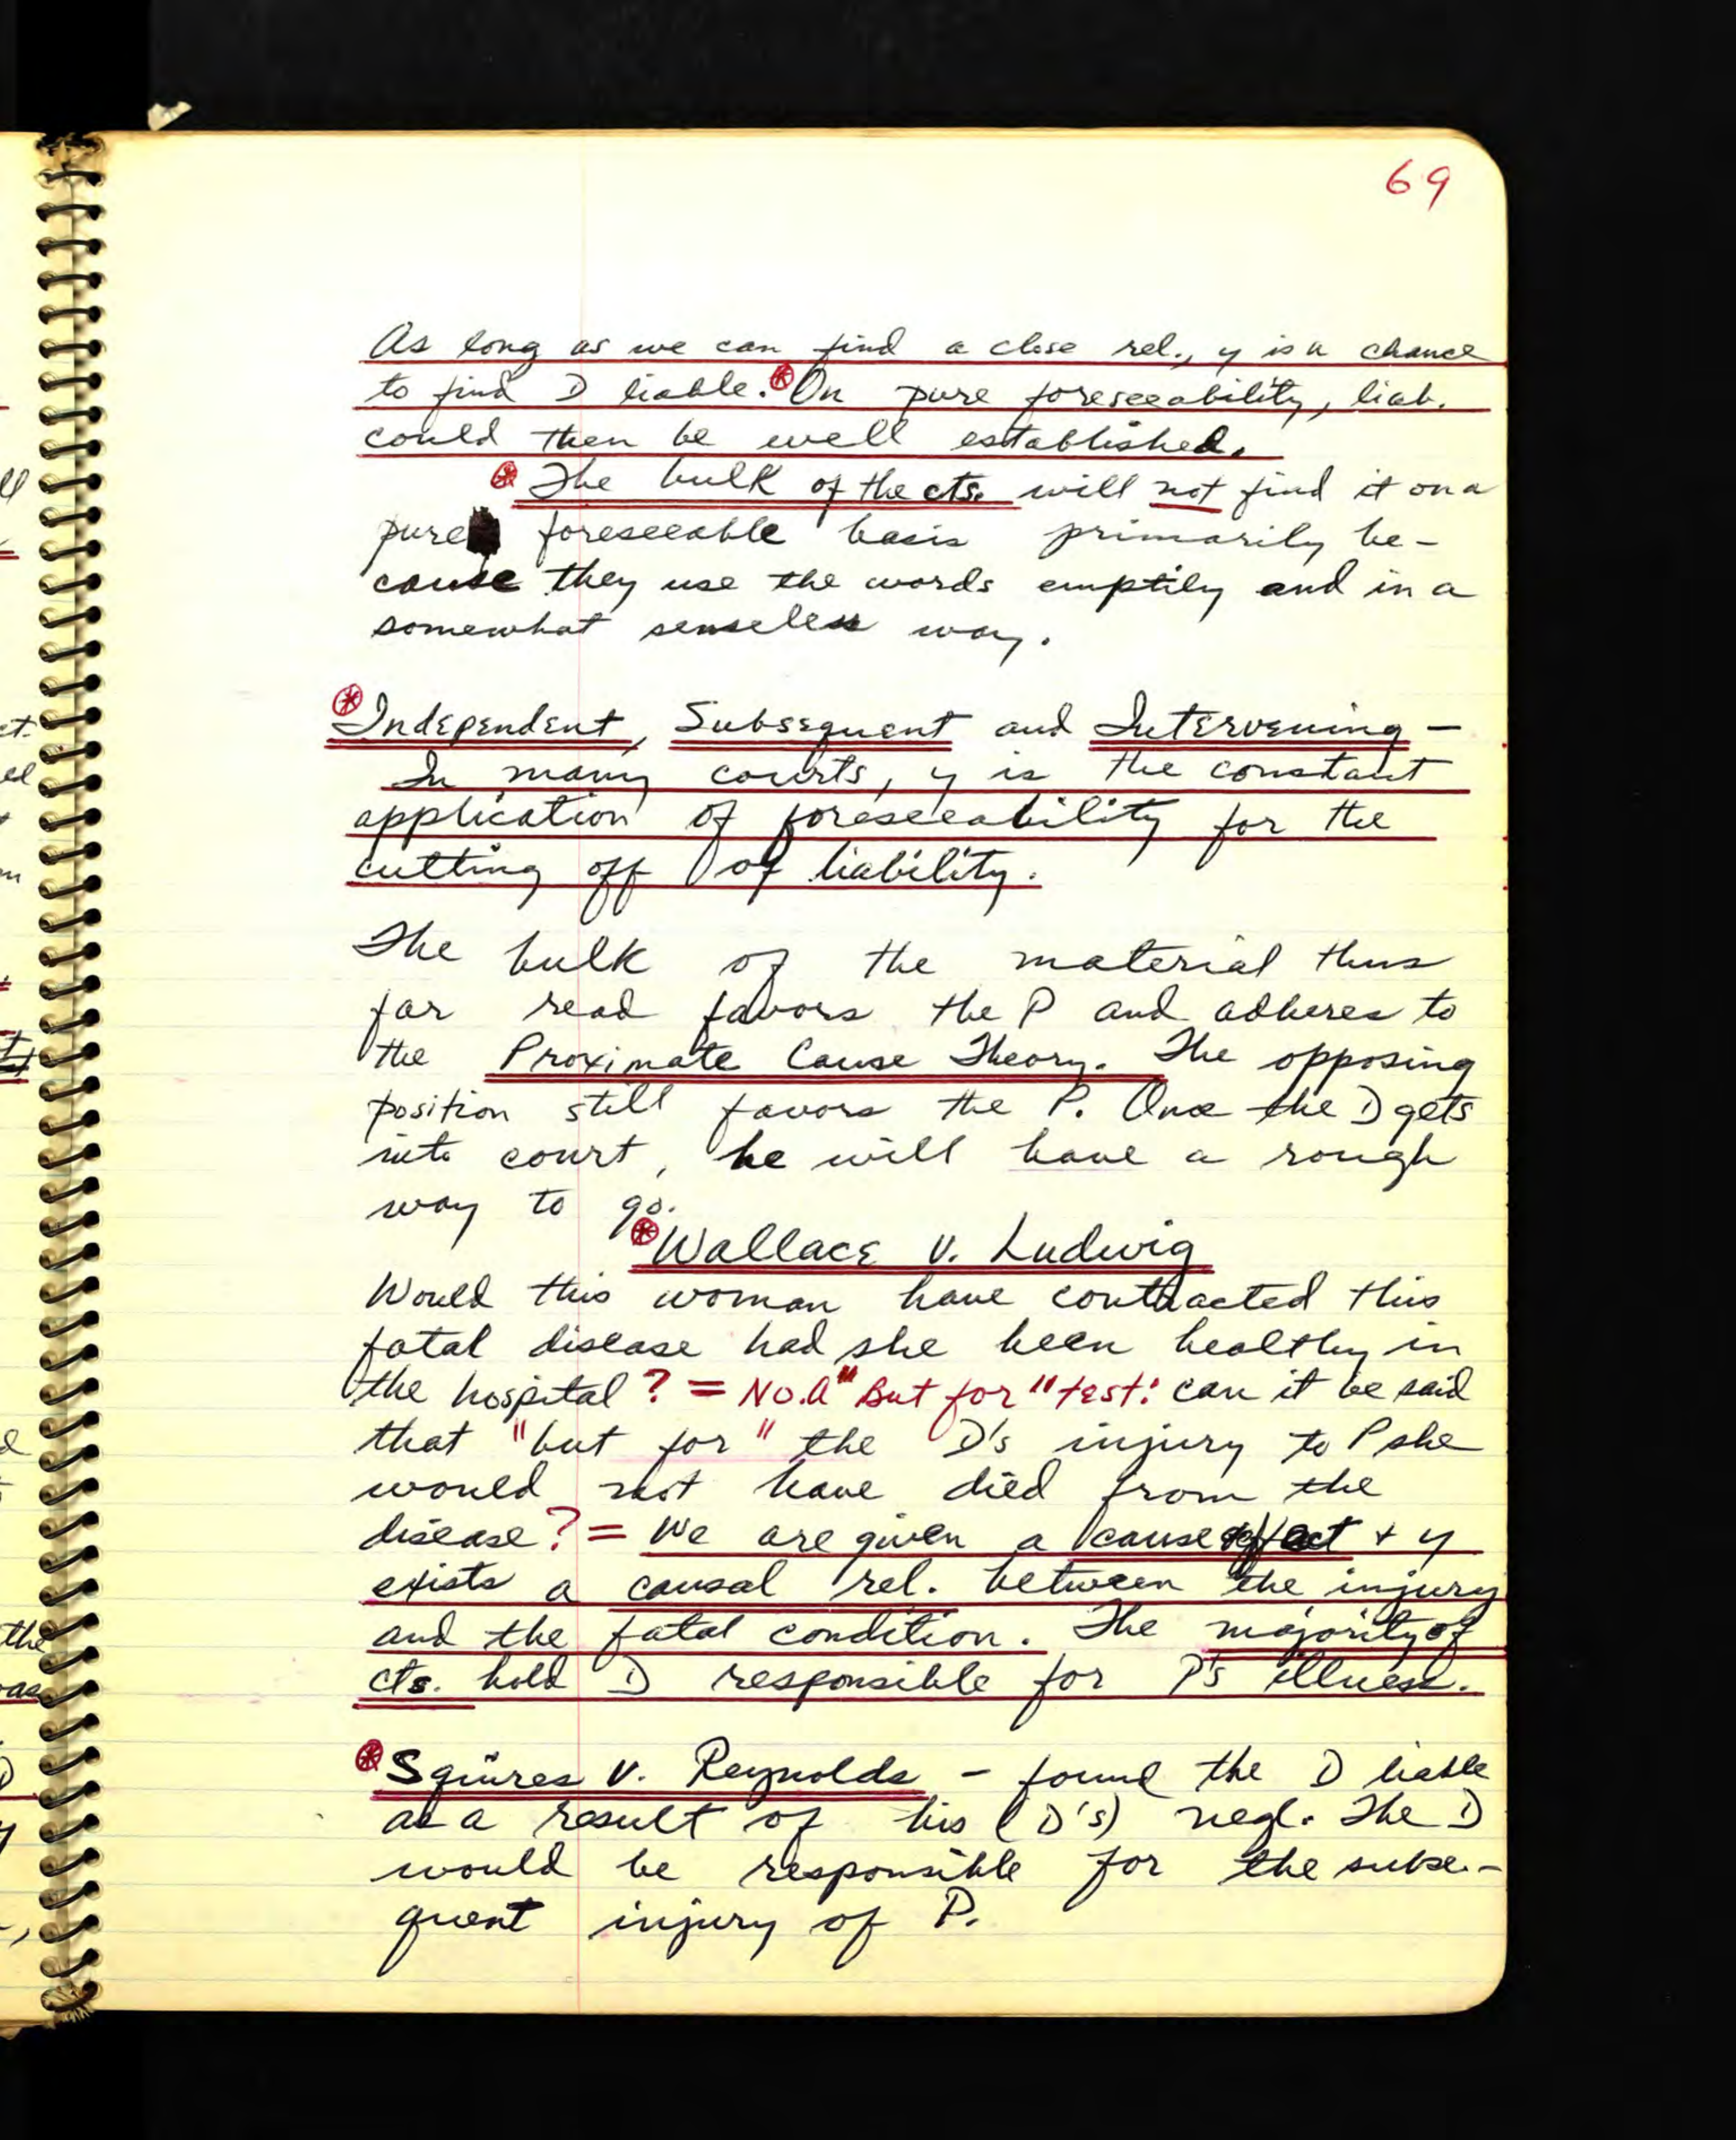 69
As long as we can find a close rel., y is a chance
to find D liable. On pure foreseeability, liab.
could then be well established.
The bulk of the cts. will not find it on a
pure foreseeable basis primarily be-
cause they use the words emptily and in a
somewhat senseless way.
Independent, Subsequent and Intervening -
In many courts, y is the constant
application of foreseeability for the
cutting off of liability.
The bulk of the material thus
far read favors the P and adheres to
the Proximate Cause Theory. The opposing
position still favors the P. Once the D gets
into court, he will have a rough
way to go.
Wallace v. Ludwig
Would this woman have contracted this
fatal disease had she been healthy in
the hospital? = No. A "But for" test: can it be said
that "but for" the D's injury to P she
would not have died from the
disease? = We are given a cause + y
exists a causal rel. between the injury
and the fatal condition. The majority of
cts. hold D responsible for P's illness.
Squires v. Reynolds - found the D liable
as a result of his (D's) negl. The D
would be responsible for the subse-
quent injury of P.